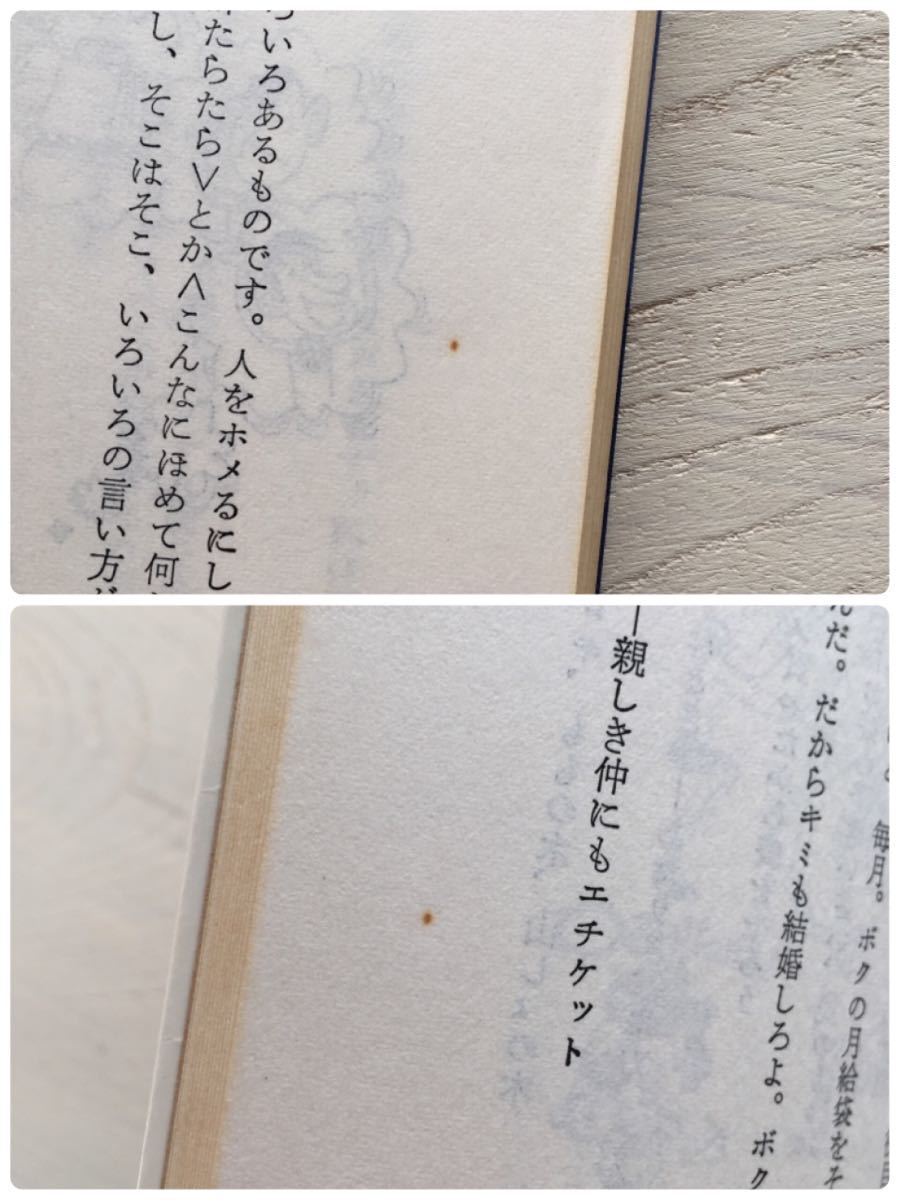 ろいろあるものです。人をホメるにし
たらたら＞とか＜こんなにほめて何
し、そこはそこ、いろいろの言い方が
毎月。ボクの月給袋をそ
んだ。だからキミも結婚しろよ。ボク
―親しき仲にもエチケット